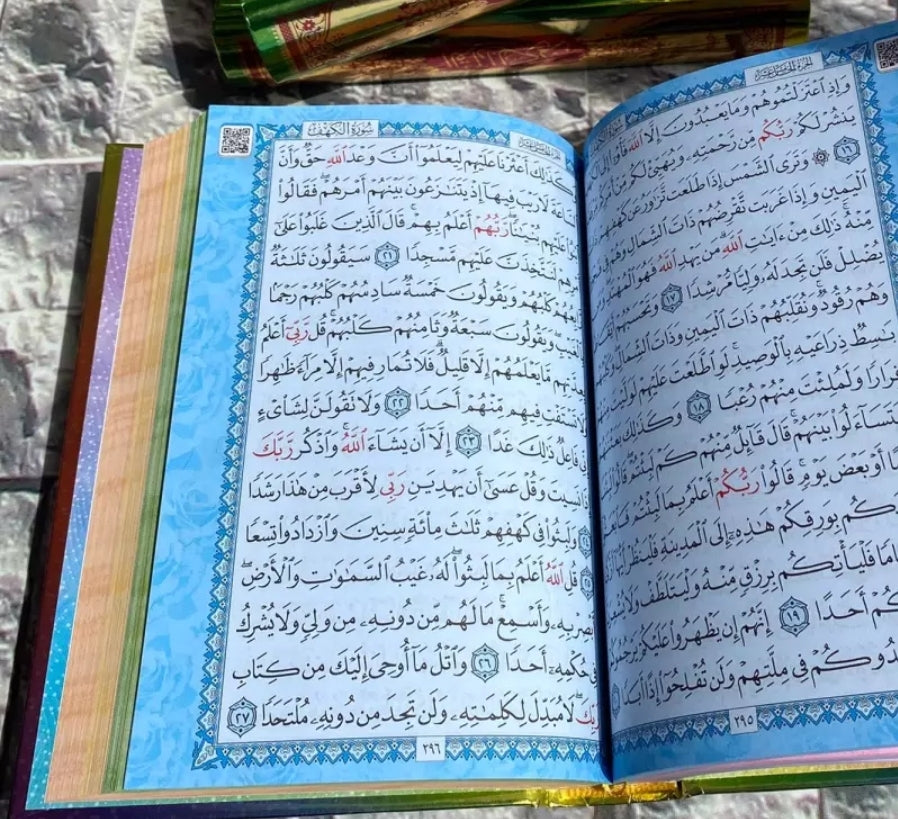 الجزء الخامس عشر
وَإِذِ ٱعْتَزَلْتُمُوهُمْ وَمَا يَعْبُدُونَ إِلَّا ٱللَّهَ فَأْوُۥٓا۟
يَنشُرْ لَكُمْ رَبُّكُم مِّن رَّحْمَتِهِۦ وَيُهَيِّئْ لَكُم مِّنْ
١٦ ۞ وَتَرَى ٱلشَّمْسَ إِذَا طَلَعَت تَّزَٰوَرُ عَن كَهْفِهِمْ
ٱلْيَمِينِ وَإِذَا غَرَبَت تَّقْرِضُهُمْ ذَاتَ ٱلشِّمَالِ وَهُمْ
مِّنْهُ ۚ ذَٰلِكَ مِنْ ءَايَٰتِ ٱللَّهِ ۗ مَن يَهْدِ ٱللَّهُ فَهُوَ ٱلْمُهْتَدِ
يُضْلِلْ فَلَن تَجِدَ لَهُۥ وَلِيًّا مُّرْشِدًا ١٧ وَتَحْسَبُهُمْ
وَهُمْ رُقُودٌ ۚ وَنُقَلِّبُهُمْ ذَاتَ ٱلْيَمِينِ وَذَاتَ ٱلشِّمَالِ
بَٰسِطٌ ذِرَاعَيْهِ بِٱلْوَصِيدِ ۚ لَوِ ٱطَّلَعْتَ عَلَيْهِمْ لَوَلَّيْتَ
فِرَارًا وَلَمُلِئْتَ مِنْهُمْ رُعْبًا ١٨ وَكَذَٰلِكَ
لِيَتَسَآءَلُوا۟ بَيْنَهُمْ ۚ قَالَ قَآئِلٌ مِّنْهُمْ كَمْ لَبِثْتُمْ ۖ قَالُوا۟
أَوْ بَعْضَ يَوْمٍ ۚ قَالُوا۟ رَبُّكُمْ أَعْلَمُ بِمَا لَبِثْتُمْ
بِوَرِقِكُمْ هَٰذِهِۦٓ إِلَى ٱلْمَدِينَةِ فَلْيَنظُرْ أَيُّهَآ
فَلْيَأْتِكُم بِرِزْقٍ مِّنْهُ وَلْيَتَلَطَّفْ وَلَا
أَحَدًا ١٩ إِنَّهُمْ إِن يَظْهَرُوا۟ عَلَيْكُمْ يَرْجُمُوكُمْ
فِى مِلَّتِهِمْ وَلَن تُفْلِحُوٓا۟ إِذًا أَبَدًا
٢٩٥
سورة الكهف
وَكَذَٰلِكَ أَعْثَرْنَا عَلَيْهِمْ لِيَعْلَمُوٓا۟ أَنَّ وَعْدَ ٱللَّهِ حَقٌّ وَأَنَّ
لَا رَيْبَ فِيهَآ إِذْ يَتَنَٰزَعُونَ بَيْنَهُمْ أَمْرَهُمْ ۖ فَقَالُوا۟
عَلَيْهِم بُنْيَٰنًا ۖ رَّبُّهُمْ أَعْلَمُ بِهِمْ ۚ قَالَ ٱلَّذِينَ غَلَبُوا۟ عَلَىٰٓ
أَمْرِهِمْ لَنَتَّخِذَنَّ عَلَيْهِم مَّسْجِدًا ٢١ سَيَقُولُونَ ثَلَٰثَةٌ
رَّابِعُهُمْ كَلْبُهُمْ وَيَقُولُونَ خَمْسَةٌ سَادِسُهُمْ كَلْبُهُمْ رَجْمًۢا
بِٱلْغَيْبِ ۖ وَيَقُولُونَ سَبْعَةٌ وَثَامِنُهُمْ كَلْبُهُمْ ۚ قُل رَّبِّىٓ أَعْلَمُ
بِعِدَّتِهِم مَّا يَعْلَمُهُمْ إِلَّا قَلِيلٌ ۗ فَلَا تُمَارِ فِيهِمْ إِلَّا مِرَآءً ظَٰهِرًا
وَلَا تَسْتَفْتِ فِيهِم مِّنْهُمْ أَحَدًا ٢٢ وَلَا تَقُولَنَّ لِشَا۟ىْءٍ
إِنِّى فَاعِلٌ ذَٰلِكَ غَدًا ٢٣ إِلَّآ أَن يَشَآءَ ٱللَّهُ ۚ وَٱذْكُر رَّبَّكَ
إِذَا نَسِيتَ وَقُلْ عَسَىٰٓ أَن يَهْدِيَنِ رَبِّى لِأَقْرَبَ مِنْ هَٰذَا رَشَدًا
٢٤ وَلَبِثُوا۟ فِى كَهْفِهِمْ ثَلَٰثَ مِا۟ئَةٍ سِنِينَ وَٱزْدَادُوا۟ تِسْعًا
٢٥ قُلِ ٱللَّهُ أَعْلَمُ بِمَا لَبِثُوا۟ ۖ لَهُۥ غَيْبُ ٱلسَّمَٰوَٰتِ وَٱلْأَرْضِ ۖ
أَبْصِرْ بِهِۦ وَأَسْمِعْ ۚ مَا لَهُم مِّن دُونِهِۦ مِن وَلِىٍّ وَلَا يُشْرِكُ
فِى حُكْمِهِۦٓ أَحَدًا ٢٦ وَٱتْلُ مَآ أُوحِىَ إِلَيْكَ مِن كِتَابِ
رَبِّكَ ۖ لَا مُبَدِّلَ لِكَلِمَٰتِهِۦ وَلَن تَجِدَ مِن دُونِهِۦ مُلْتَحَدًا ٢٧
٢٩٦